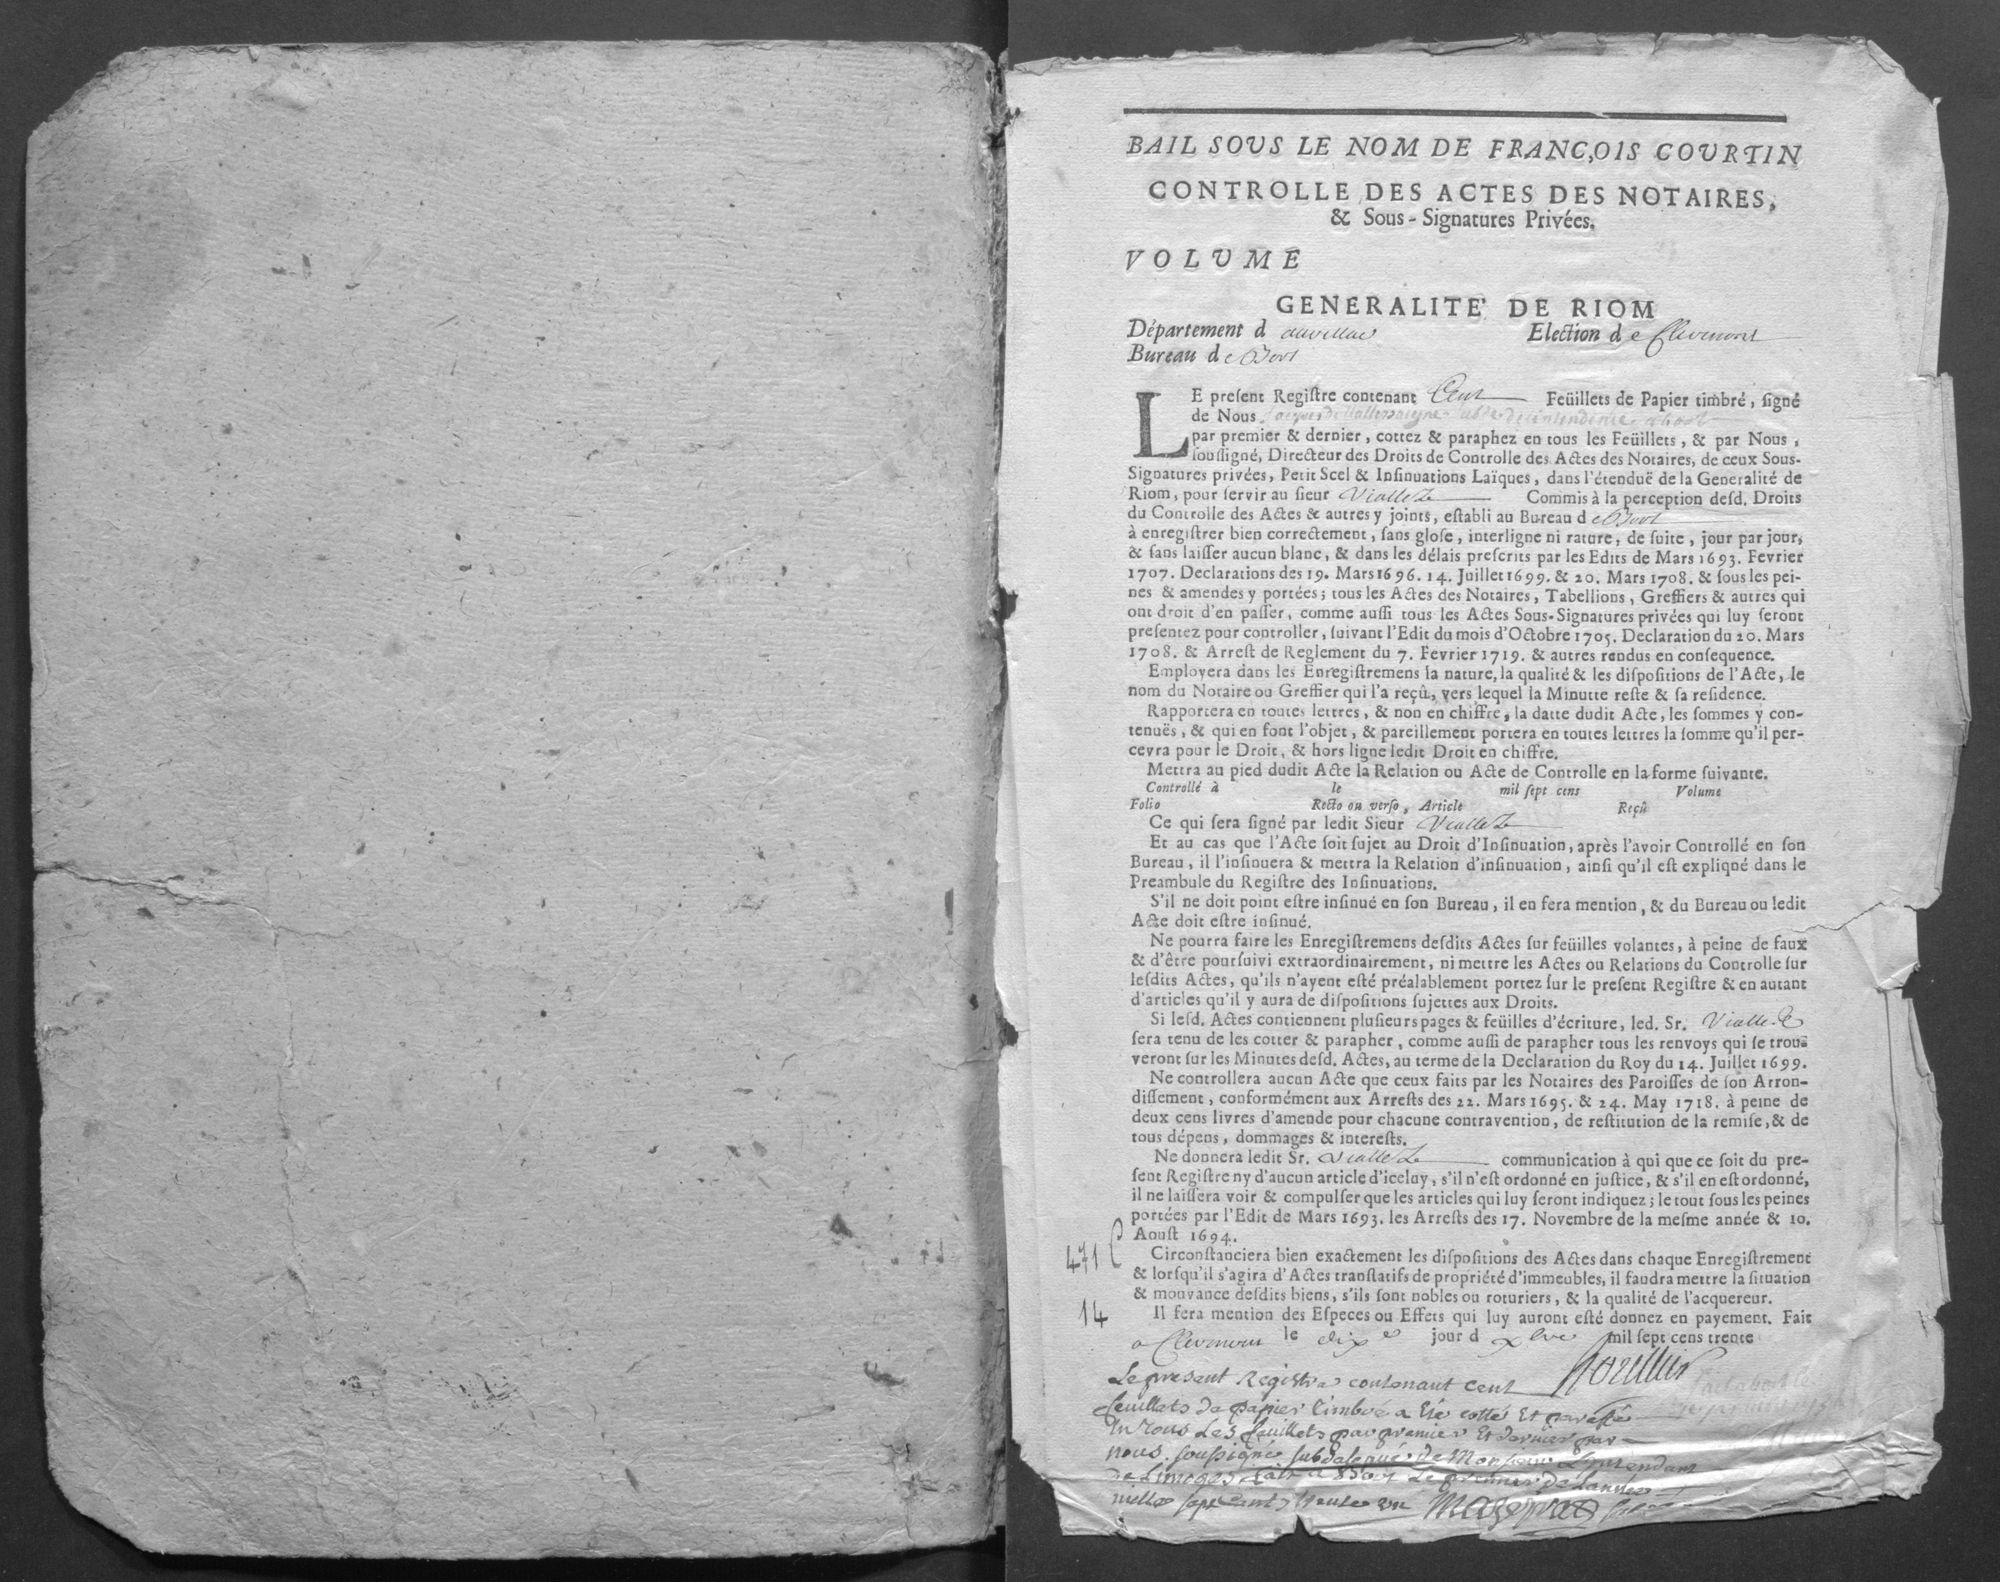 BAIL SOUS LE NOM DE FRANC,OIS COURTIN
CONTROLLE DES ACTES DES NOTAIRES,
& Sous-Signatures Privées.
VOLUME
GENERALITE' DE RIOM
Département d aurillac Election de Clermont
Bureau de Bort
LE preſent Regiſtre contenant Cent Feüillets de Papier timbré, ſigné
de Nous
par premier & dernier, cottez & paraphez en tous les Feüillets, & par Nous,
ſouſſigné, Directeur des Droits de Controlle des Actes des Notaires, de ceux Sous-
Signatures privées, Petit Scel & Inſinuations Laïques, dans l'étenduë de la Generalité de
Riom, pour ſervir au ſieur Vialleze Commis à la perception deſd. Droits
du Controlle des Actes & autres y joints, eſtabli au Bureau de Bort
à enregiſtrer bien correctement, ſans gloſe, interligne ni rature, de ſuite, jour par jour,
& ſans laiſſer aucun blanc, & dans les délais preſcrits par les Edits de Mars 1693. Fevrier
1707. Declarations des 19. Mars 1696. 14. Juillet 1699. & 20. Mars 1708. & ſous les pei-
nes & amendes y portées; tous les Actes des Notaires, Tabellions, Greffiers & autres qui
ont droit d'en paſſer, comme auſſi tous les Actes Sous-Signatures privées qui luy ſeront
preſentez pour controller, ſuivant l'Edit du mois d'Octobre 1705. Declaration du 20. Mars
1708. & Arreſt de Reglement du 7. Fevrier 1719. & autres rendus en conſequence.
Employera dans les Enregiſtremens la nature, la qualité & les diſpoſitions de l'Acte, le
nom du Notaire ou Greffier qui l'a reçû, vers lequel la Minutte reſte & ſa reſidence.
Rapportera en toutes lettres, & non en chiffre, la datte dudit Acte, les ſommes y con-
tenuës, & qui en font l'objet, & pareillement portera en toutes lettres la ſomme qu'il per-
cevra pour le Droit, & hors ligne ledit Droit en chiffre.
Mettra au pied dudit Acte la Relation ou Acte de Controlle en la forme ſuivante.
Controllé à le mil ſept cens Volume
Folio Recto ou verſo, Article Reçû
Ce qui ſera ſigné par ledit Sieur Vialleze
Et au cas que l'Acte ſoit ſujet au Droit d'Inſinuation, après l'avoir Controllé en ſon
Bureau, il l'inſinuera & mettra la Relation d'inſinuation, ainſi qu'il eſt expliqué dans le
Preambule du Regiſtre des Inſinuations.
S'il ne doit point eſtre inſinué en ſon Bureau, il en fera mention, & du Bureau ou ledit
Acte doit eſtre inſinué.
Ne pourra faire les Enregiſtremens deſdits Actes ſur feüilles volantes, à peine de faux
& d'être pourſuivi extraordinairement, ni mettre les Actes ou Relations du Controlle ſur
leſdits Actes, qu'ils n'ayent eſté préalablement portez ſur le preſent Regiſtre & en autant
d'articles qu'il y aura de diſpoſitions ſujettes aux Droits.
Si leſd. Actes contiennent pluſieurs pages & feüilles d'écriture, led. Sr. Vialleze
ſera tenu de les cotter & parapher, comme auſſi de parapher tous les renvoys qui ſe trou-
veront ſur les Minutes deſd. Actes, au terme de la Declaration du Roy du 14. Juillet 1699.
Ne controllera aucun Acte que ceux faits par les Notaires des Paroiſſes de ſon Arron-
diſſement, conformément aux Arreſts des 22. Mars 1695. & 24. May 1718. à peine de
deux cens livres d'amende pour chacune contravention, de reſtitution de la remiſe, & de
tous dépens, dommages & intereſts.
Ne donnera ledit Sr. Vialleze communication à qui que ce ſoit du pre-
ſent Regiſtre ny d'aucun article d'iceluy, s'il n'eſt ordonné en juſtice, & s'il en eſt ordonné,
il ne laiſſera voir & compulſer que les articles qui luy ſeront indiquez; le tout ſous les peines
portées par l'Edit de Mars 1693. les Arreſts des 17. Novembre de la meſme année & 10.
Aouſt 1694.
471 C
Circonſtanciera bien exactement les diſpoſitions des Actes dans chaque Enregiſtrement
& lorſqu'il s'agira d'Actes tranſlatifs de propriété d'immeubles, il faudra mettre la ſituation
& mouvance deſdits biens, s'ils ſont nobles ou roturiers, & la qualité de l'acquereur.
14
Il ſera mention des Eſpeces ou Effets qui luy auront eſté donnez en payement. Fait
a Clermont le dix e jour d xbre mil ſept cens trente
Le present Registre contenant cent
feuillets de papier timbré a Eté cotté Et paraffé
En Tous Les feuillets par premier Et dernier par
nous soussigné subdelegué De Monsieur L'intendant
De Limoges fait a Bort Le premier De Lannée
mille sept cents trente un